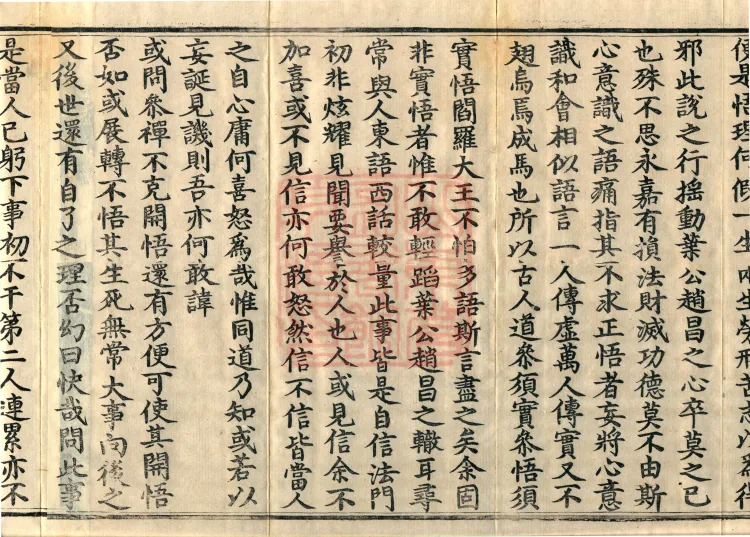 是悟理何一生坐勞形
邪此說之行搖動葉公趙昌之心卒莫之已
也殊不思永嘉有損法財滅功德莫不由斯
心意識之語痛指其不求正悟者妄將心意
識和會相似語言一人傳虛萬人傳實又不
翅烏焉成馬也所以古人道參須實參悟須
實悟閻羅大王不怕多語斯言盡之矣余固
非實悟者惟不敢輕蹈葉公趙昌之轍耳尋
常與人東語西話較量此事皆是自信法門
初非炫耀見聞要譽於人也人或見信余不
加喜或不見信亦何敢怒然信不信皆當人
之自心庸何喜怒爲哉惟同道乃知或若以
妄誕見譏則吾亦何敢諱
或問參禪不克開悟還有方便可使其開悟
否如或展轉不悟其生死無常大事向後之
又後世還有自了之理否幻曰快哉問此事
是當人已躬下事初不干第二人連累亦不